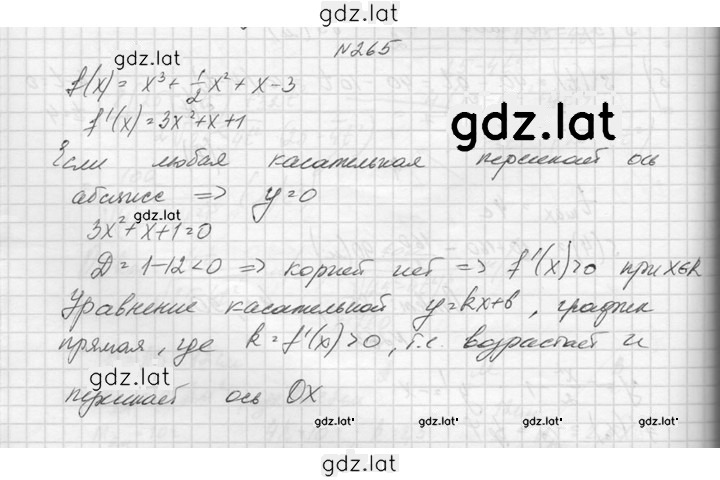 gdz.lat
N265
gdz.lat
f(x) = x³ + 1/2 x² + x - 3
f'(x) = 3x² + x + 1
gdz.lat
Если любая касательная пересекает ось
абсцисс => y = 0
gdz.lat
3x² + x + 1 = 0
D = 1 - 12 < 0 => корней нет => f'(x) > 0 при x∈R
Уравнение касательной y = kx + b, график
прямая, где k = f'(x) > 0, т.е. возрастает и
gdz.lat
пересекает ось OX
gdz.lat gdz.lat gdz.lat gdz.lat
gdz.lat